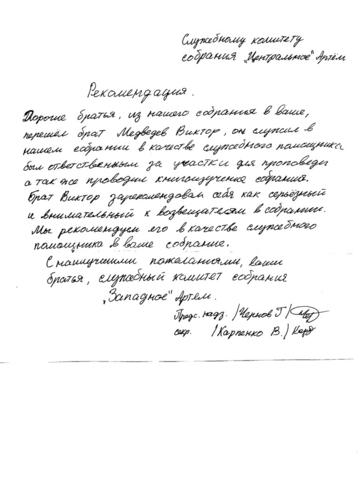 Служебному комитету
собрания "Центральное" Артём
Рекомендация.
Дорогие братья, из нашего собрания в ваше,
перешёл брат Медведев Виктор, он служил в
нашем собрании в качестве служебного помощника
был ответственным за участки для проповеди
а так же проводил книгоизучение собрания.
Брат Виктор зарекомендовал себя как серьёзный
и внимательный к возвещателям в собрании.
Мы рекомендуем его в качестве служебного
помощника в ваше собрание.
С наилучшими пожеланиями, ваши
братья, служебный комитет собрания
"Западное" Артём.
Предс. надз. /Чернов Г/
секр. /Карпенко В./